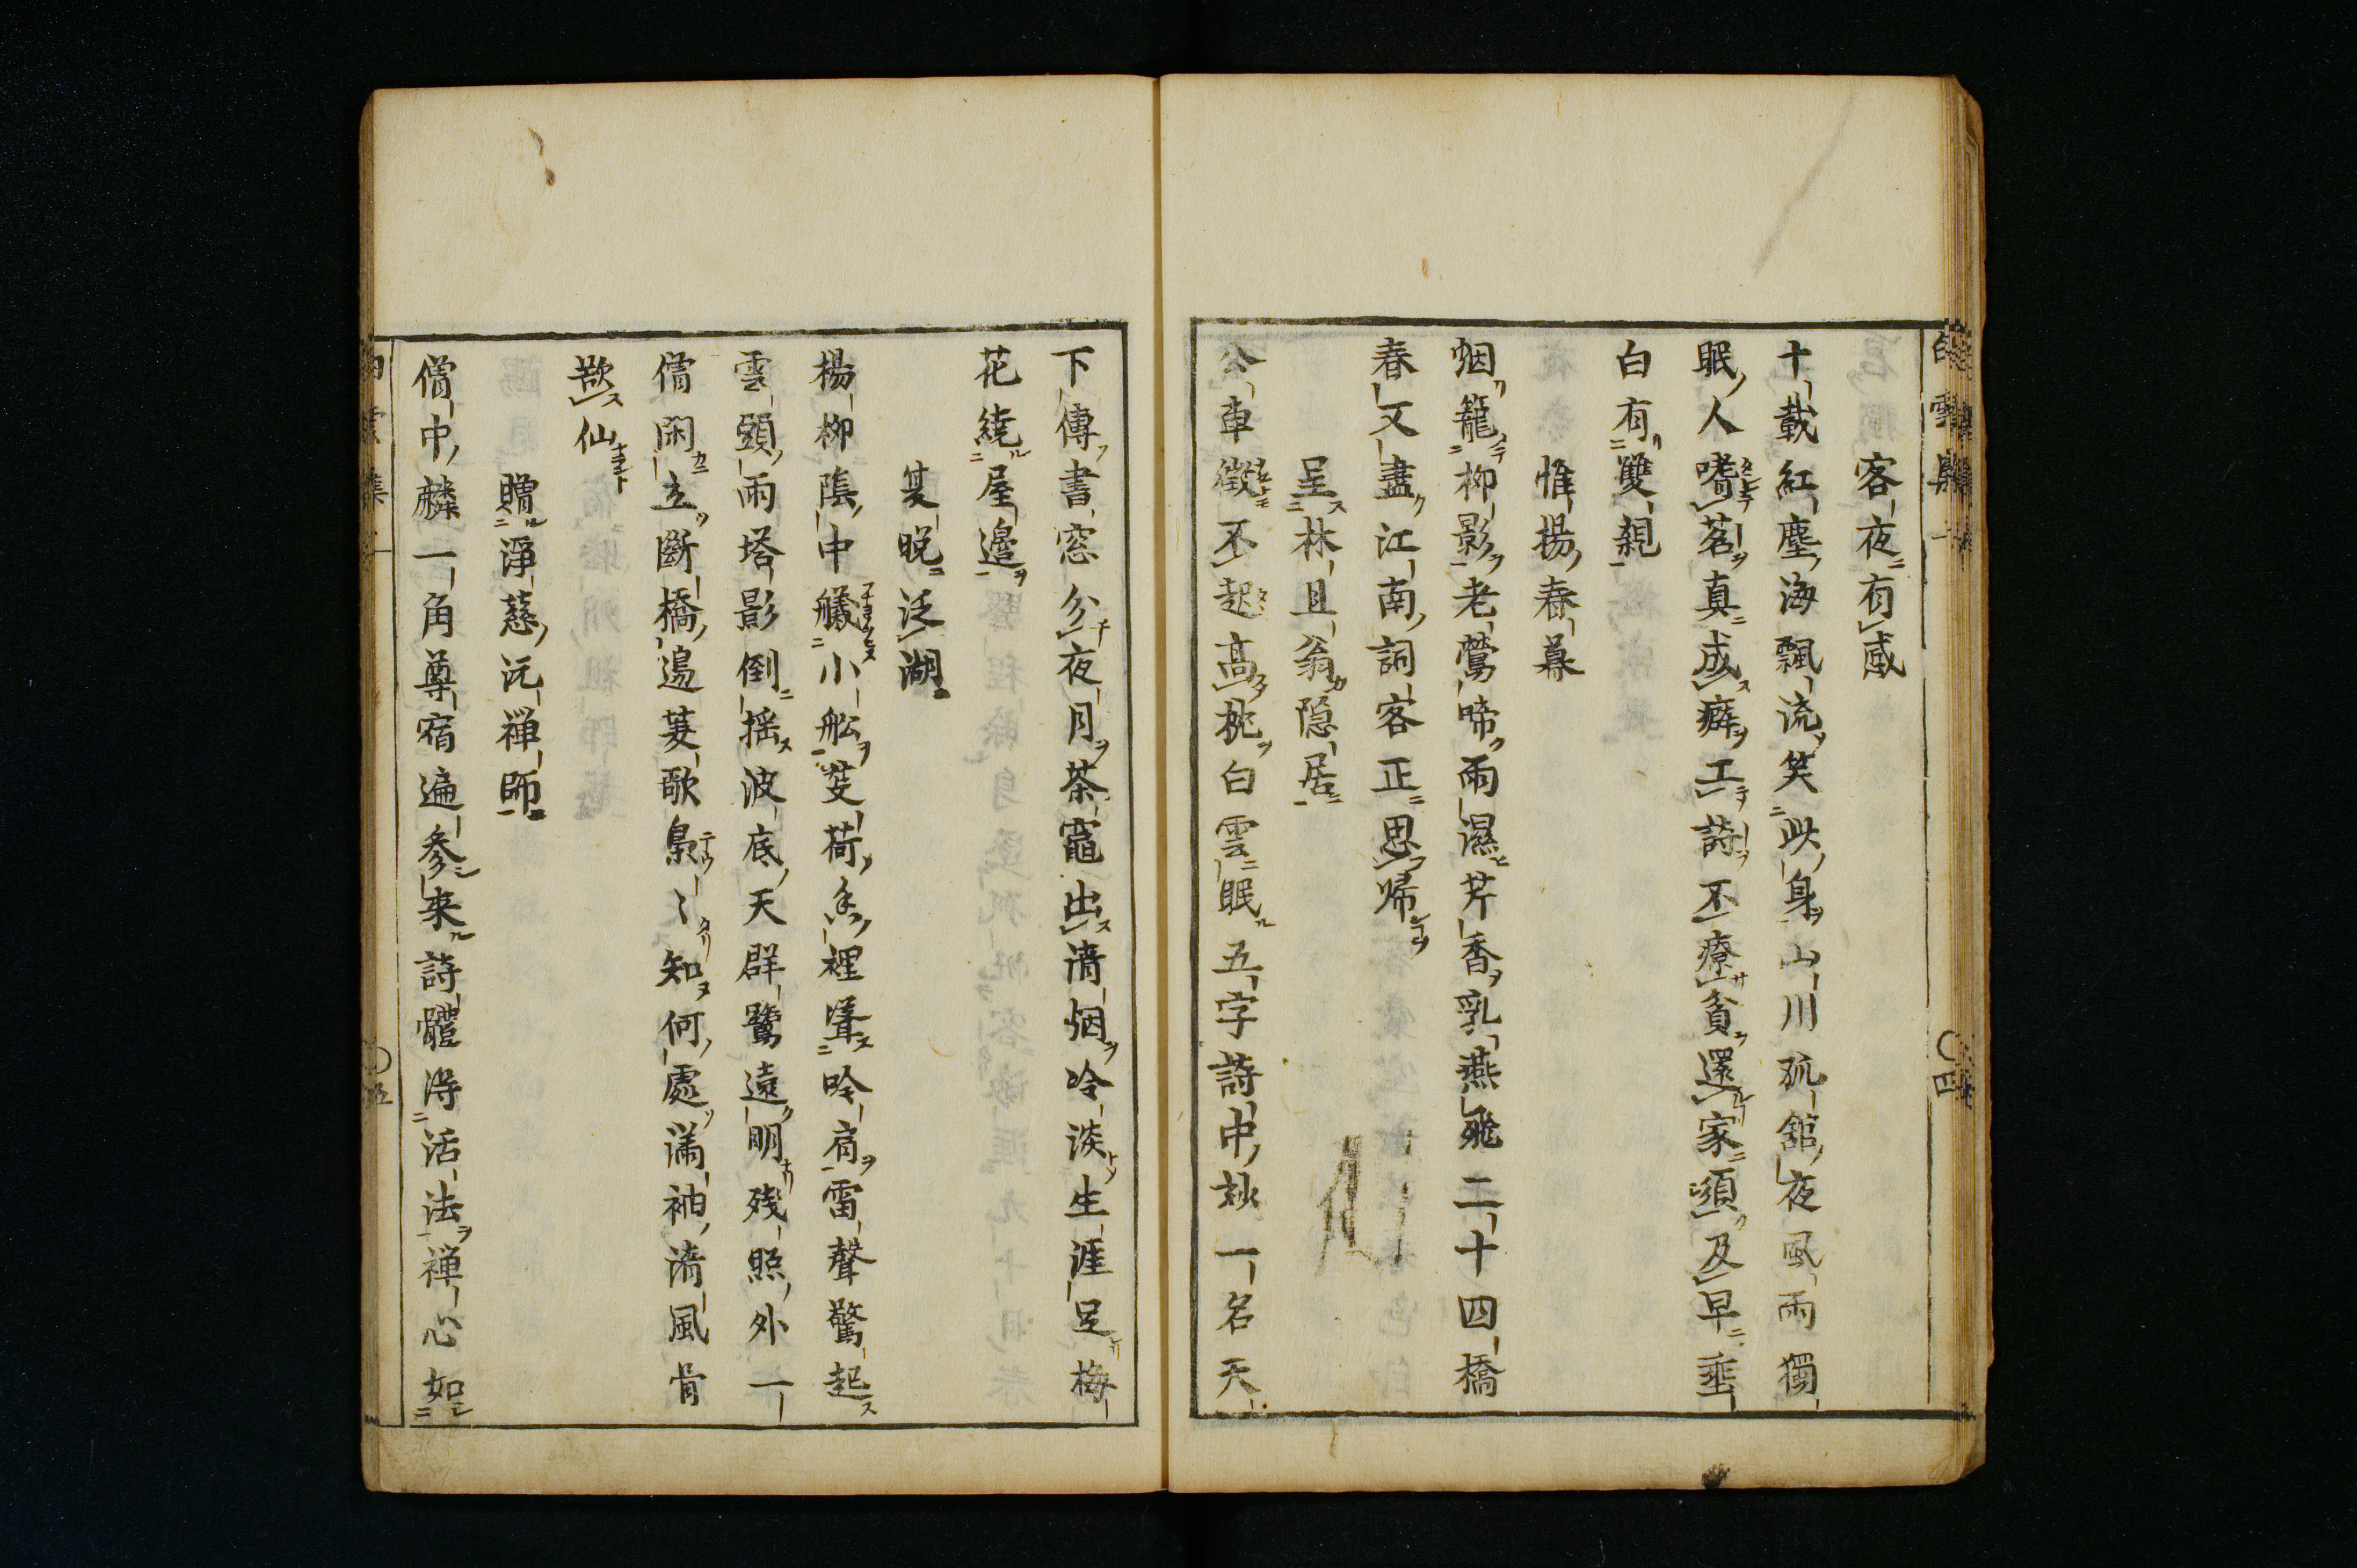 客夜有感
十載紅塵海飄流笑此身山川孤舘夜風雨獨
眠人嗜茗真成癖工詩不療貧還家須及早垂
白有雙親
惟揚春暮
烟籠柳影老鶯啼雨濕芹香乳燕飛二十四橋
春又盡江南詞客正思歸
呈林且翁隠居
公車徴不起高枕白雲眠五字詩中妙一名天
下傳書窓分夜月茶竈出清烟冷淡生涯足梅
花繞屋邉
夏晩泛湖
楊柳陰中艤小舩芰荷香裡聳吟肩雷聲驚起
雲頭雨塔影倒揺波底天群鷺遠明残照外一
僧閑立斷橋邉菱歌裊〻知何處滿袖清風骨
欲仙
贈浄慈沅禅師
僧中麟一角尊宿遍参来詩體得活法禅心如